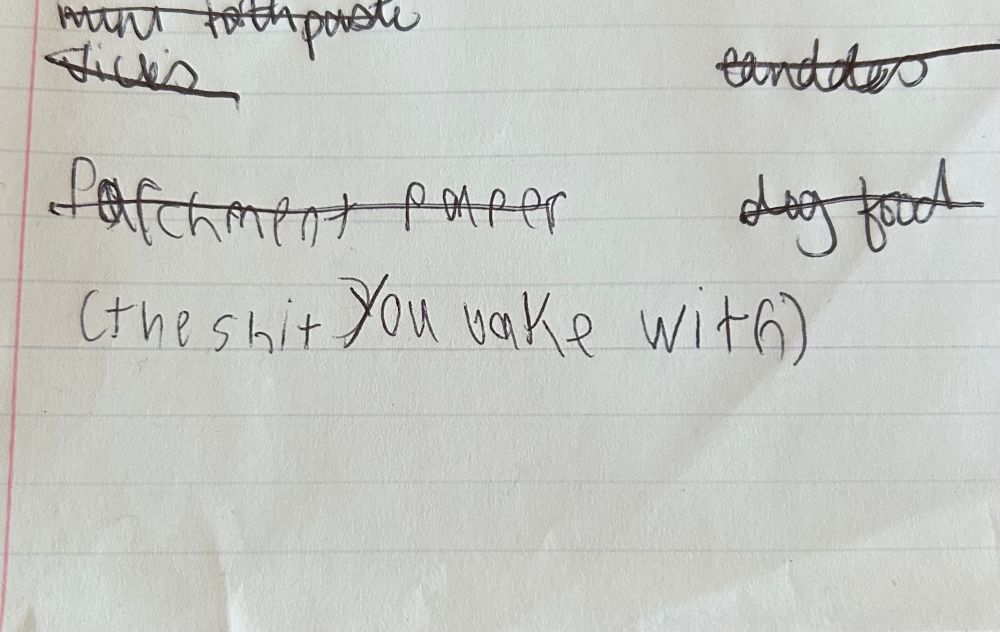 mini toothpaste
candles
Parchment Paper
dog food
(the shit You bake with)